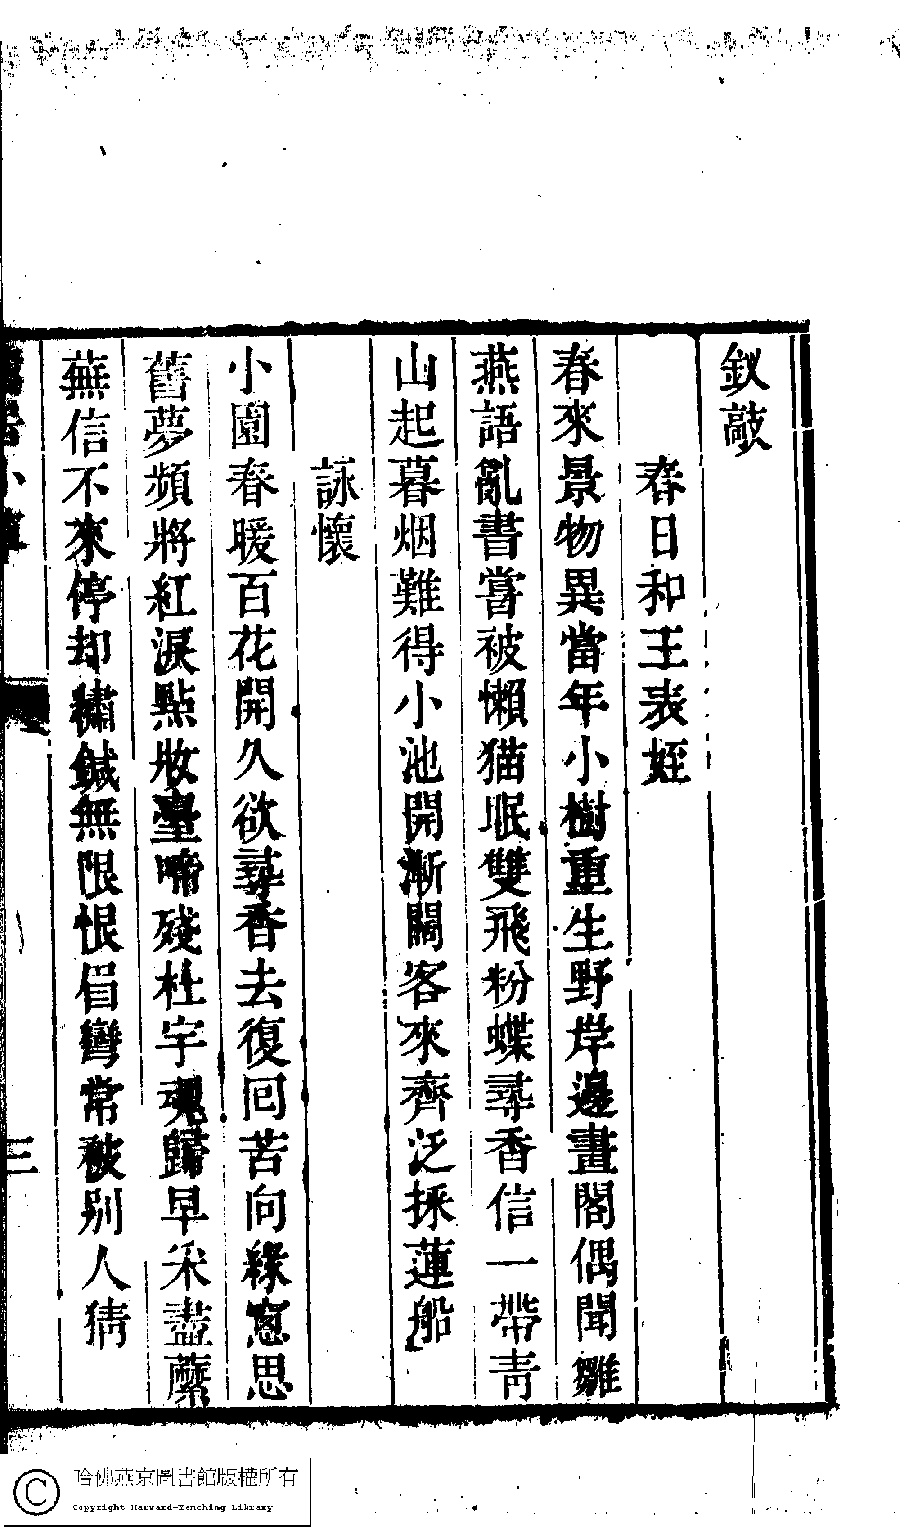 釵敲
春日和王表姪
春來景物異當年小樹重生野岸邊畫閣偶聞雛
燕語亂書嘗被懶猫眠雙飛粉蝶尋香信一帶青
山起暮烟難得小池開漸闊客來齊泛採蓮船
詠懷
小園春暖百花開久欲尋香去復回苦向綠窻思
舊夢頻將紅淚點妝臺啼殘杜宇魂歸早采盡蘪
蕪信不來停却繡鍼無限恨眉彎常被别人猜
三
哈佛燕京圖書館版權所有
Copyright Harvard-Yenching Library